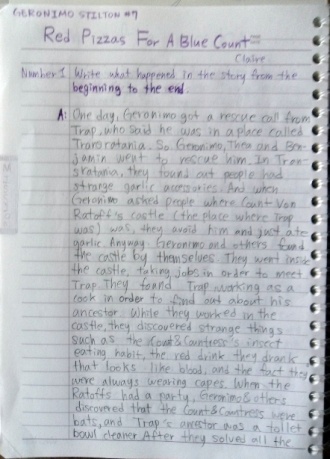 GERONIMO STILTON #7
Red Pizzas For A Blue Count
Claire
Number 1 Write what happened in the story from the
beginning to the end.
A: One day, Geronimo got a rescue call from
Trap, who said he was in a place called
Transratania. So, Geronimo, Thea and Ben-
jamin went to rescue him. In Tran-
sratania, they found out people had
strange garlic accessories. And when
Geronimo asked people where Count Von
Ratoff's castle (the place where Trap
was) was, they avoid him and just ate
garlic. Anyway, Geronimo and others found
the castle by themselves. They went inside
the castle, taking jobs in order to meet
Trap. They found Trap working as a
cook in order to find out about his
ancestor. While they worked in the
castle, they discovered strange things
such as the Count & Countress's insect
eating habit, the red drink they drank
that looks like blood, and the fact they
were always wearing capes. When the
Ratoffs had a party, Geronimo & others
discovered that the Count & Countress were
bats, and Trap's ancestor was a toilet
bowl cleaner. After they solved all the